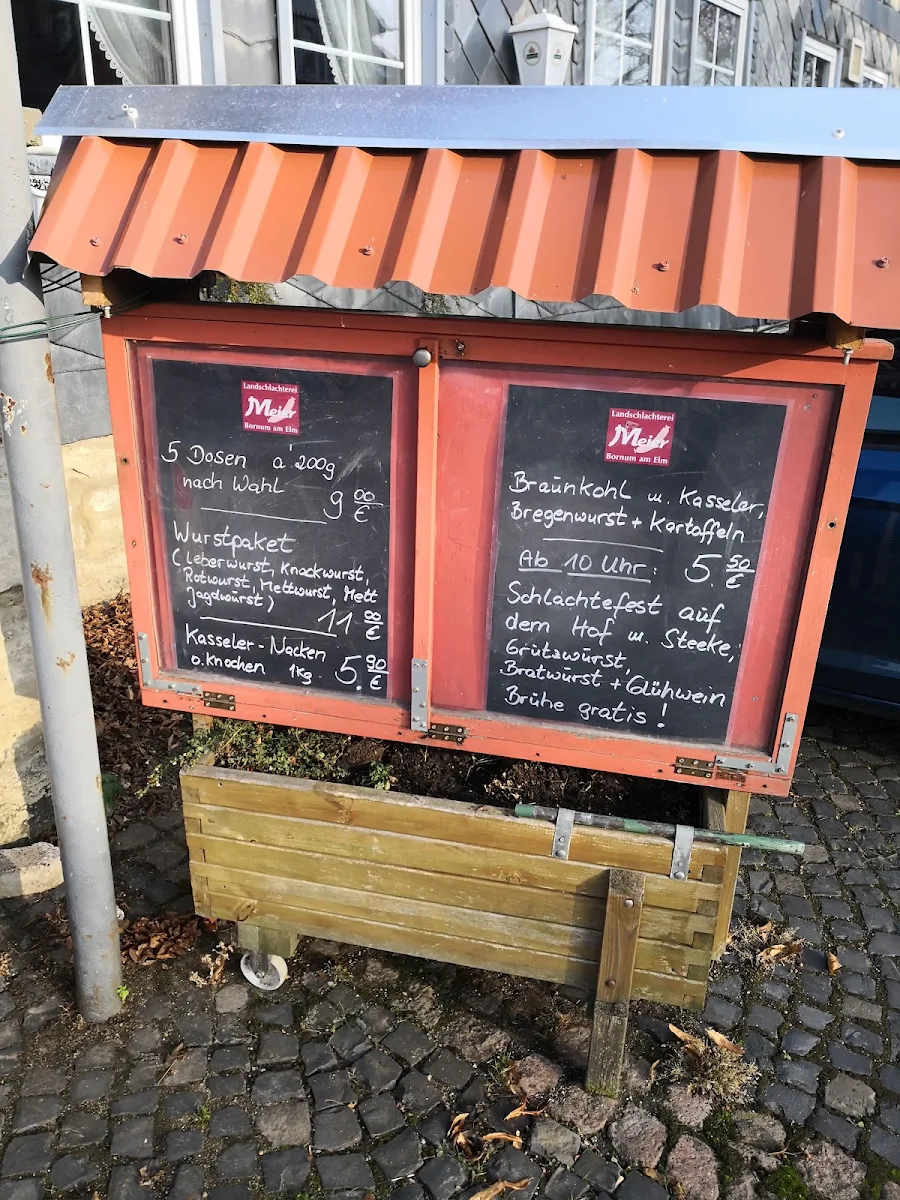 Landschlachterei
Meier
Bornum am Elm
5 Dosen a' 200g
nach Wahl 9 00 €
Wurstpaket
(Leberwurst, Knackwurst,
Rotwurst, Mettwurst, Mett
Jagdwurst)
11 00 €
Kasseler-Nacken
o. Knochen 1Kg. 5. 90 €
Landschlachterei
Meier
Bornum am Elm
Braunkohl u. Kasseler,
Bregenwurst + Kartoffeln
Ab 10 Uhr: 5. 50 €
Schlachtefest auf
dem Hof m. Steeke,
Grützwurst,
Bratwurst + Glühwein
Brühe gratis!